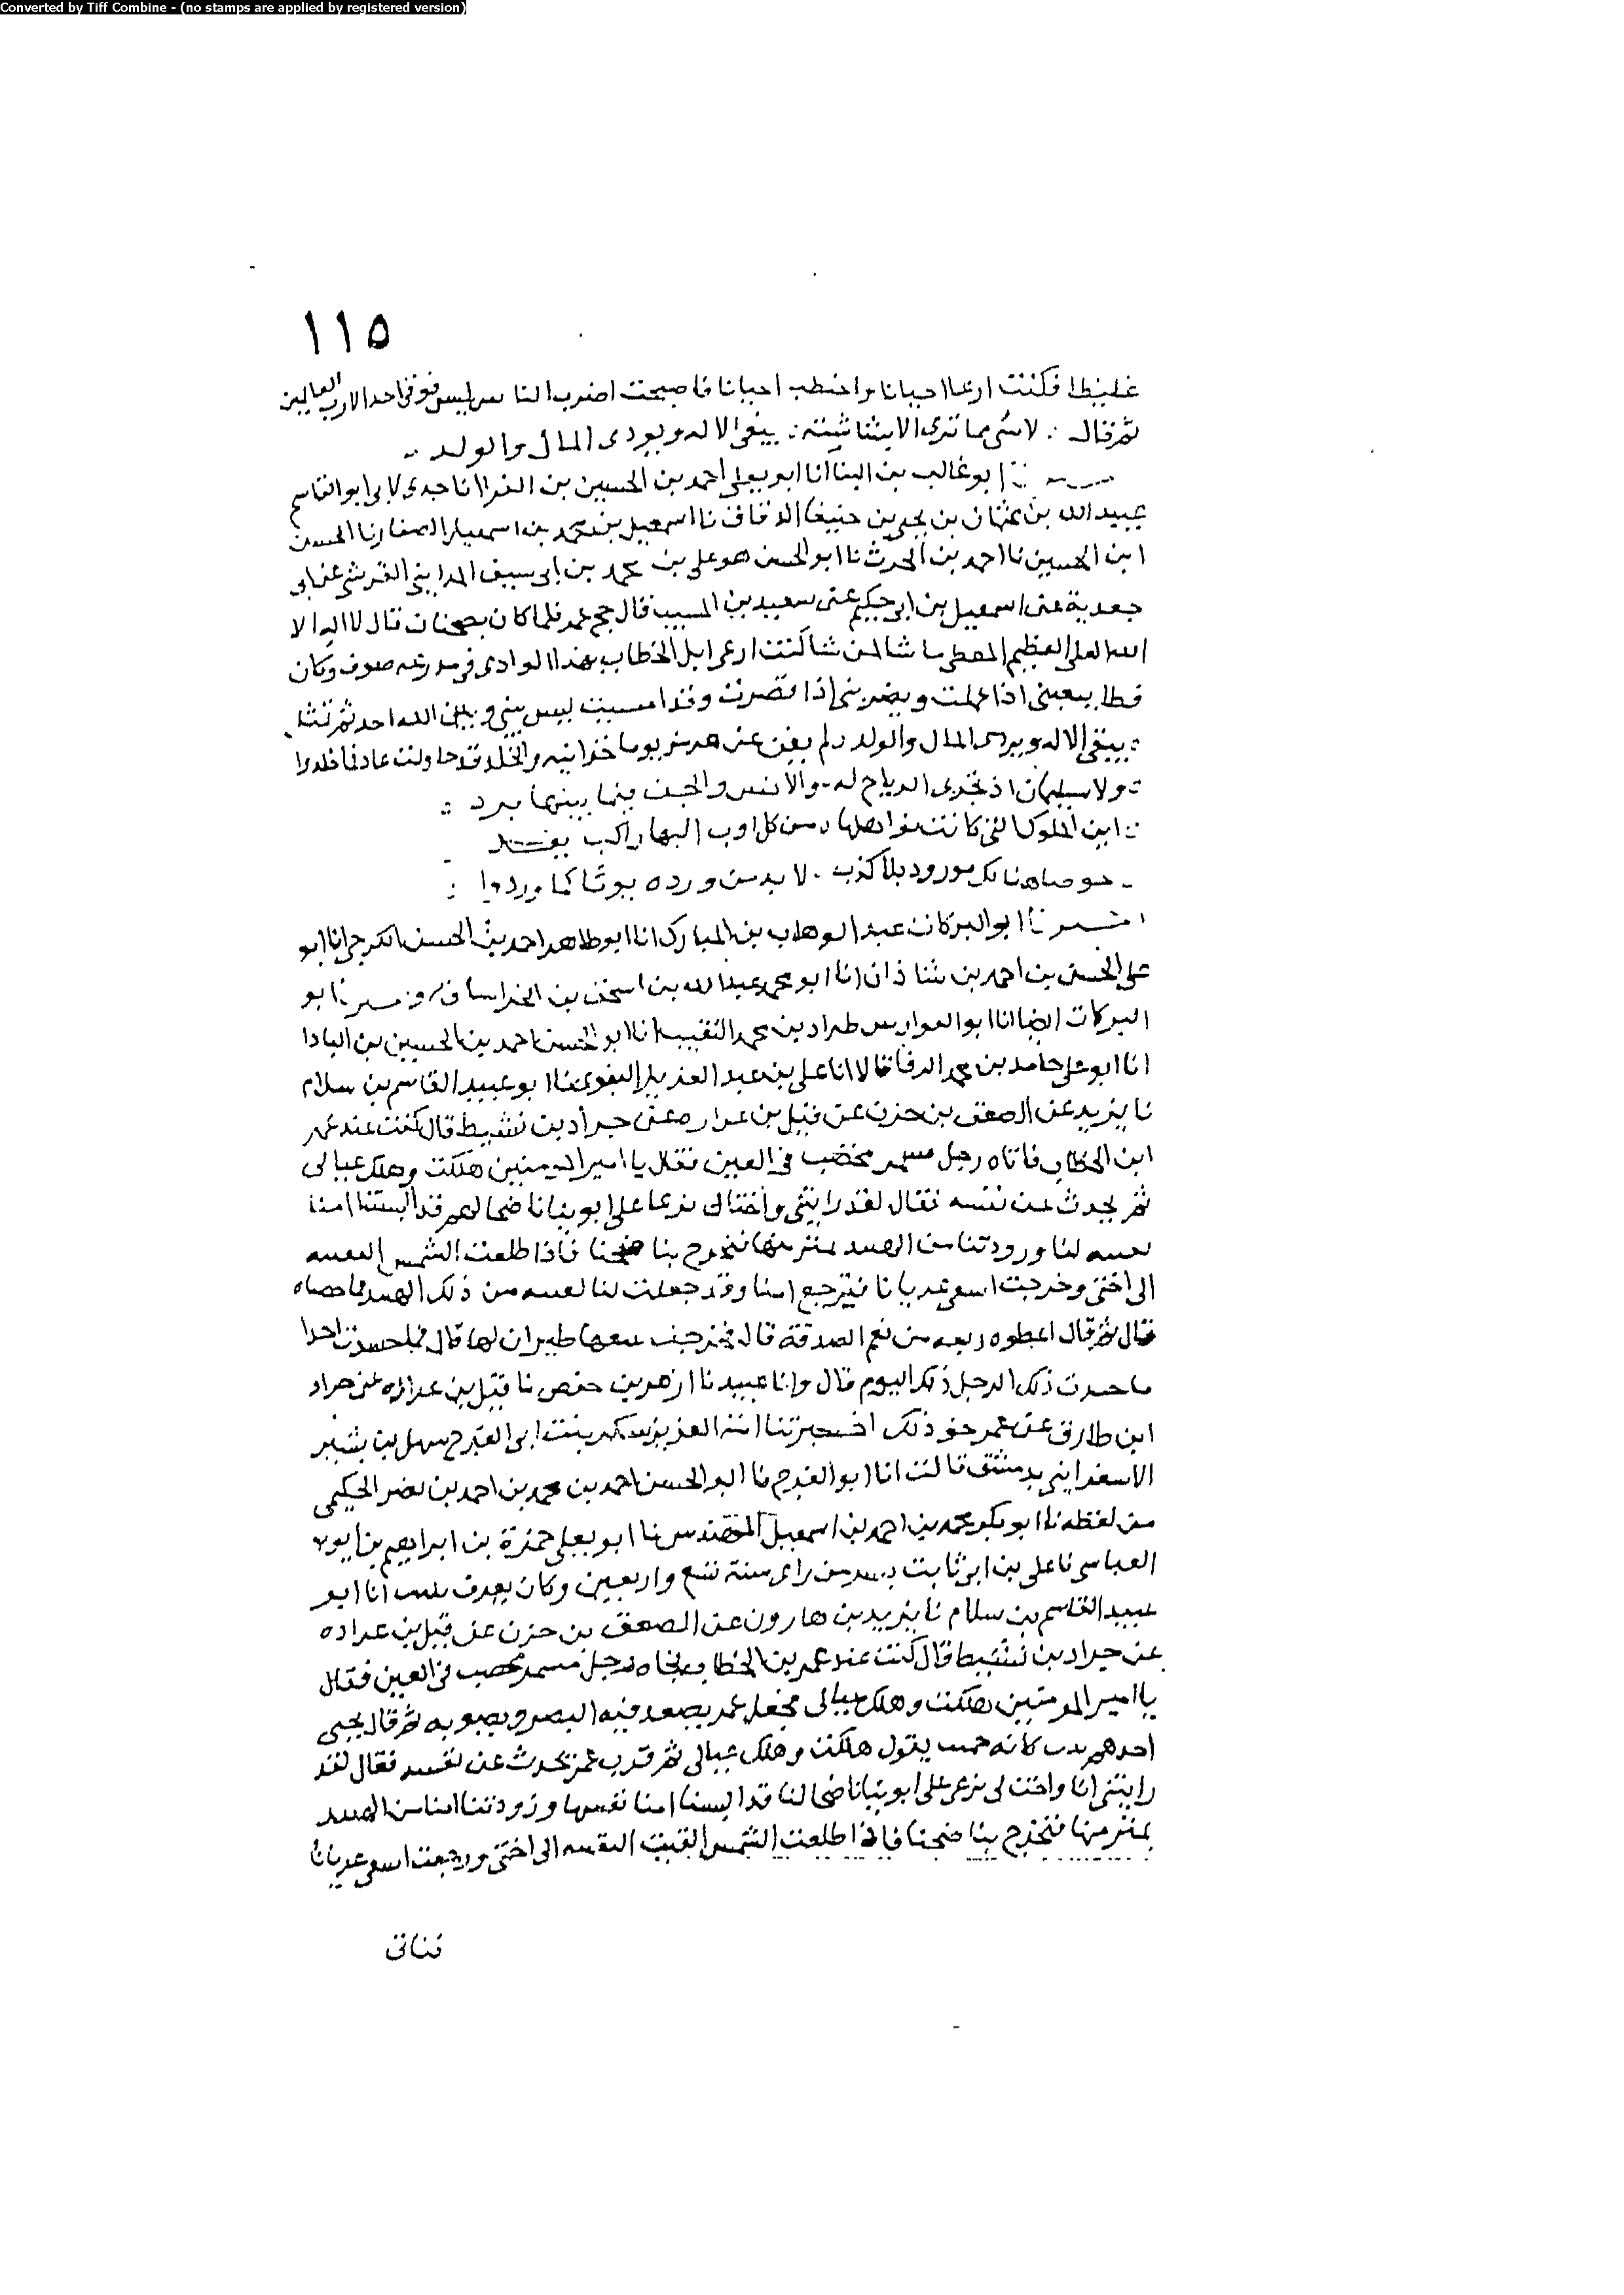 Converted by Tiff Combine - (no stamps are applied by registered version)
١١٥
غليظا فكنت ارعا احيانا واختطب احيانا فاصبحت اضرب الناس ليس فوقى احد الا رب العالمين
ثم قال : لا شى مما ترى الا بشاشته : يبقى الاله ويودى المال والولد
ابو غالب بن البنا انا ابو يعلى احمد بن الحسين بن الفرا انا جدى لابى ابو القاسم
عبيد الله بن عثمان بن يحيى بن حنيفا الدقاق نا اسمعيل بن محمد بن اسمعيل الصفار نا الحسن
ابن الحسين نا احمد بن الحرث نا ابو الحسن هو على بن محمد بن ابى سيف المداينى القرشى عن ابى
جعدية عن اسمعيل بن ابى حكيم عن سعيد بن المسيب قال حج عمر فلما كان بضجنان قال لا اله الا
الله العلى العظيم المعطى ما شا لمن شا كنت ارعى ابل الخطاب بهذا الوادى فى مدرعه صوف وكان
فظا يتعبنى اذا عملت ويضربنى اذا قصرت وقد امسيت ليس بينى وبين الله احد ثم تمثل
: يبقى الاله ويردى المال والولد لم يغن عن هرمز يوما خزاينه والخلد قد حاولت عاد فما خلدوا
: ولا سليمان اذ تجرى الرياح له والانس والجن فيما بينها برد :
: اين الملوك التى كانت نوافلها من كل اوب اليها راكب يفد
حوضا هنالك مورود بلا كذب لا بد من ورده يوما كما وردوا :
ابو البركات عبد الوهاب بن المبارك انا ابو طاهر احمد بن الحسن الكرجى انا ابو
على الحسن بن احمد بن شاذان انا ابو محمد عبد الله بن اسحق بن الخراسانى ابو
البركات ايضا انا ابو الفوارس طراد بن محمد النقيب انا ابو الحسن احمد بن الحسين بن البادا
انا ابو على حامد بن محمد الرفا قالا انا على بن عبد العزيز البغوى نا ابو عبيد القاسم بن سلام
نا يزيد عن الصعق بن حزن عن فيل بن عراره عن جراد بن نشيط قال كنت عند عمر
ابن الخطاب فاتاه رجل مخضب فى العين فقال يا امير المومنين هلكت وهلك عيالى
ثم يحدث عن نفسه فقال لقد رايتنى واختاك نرعا على ابوينا ناضحا لهم قد البستنا امنا
لنا وزودتنا من الهبيد فنخرج بنا ضحنا فاذا طلعت الشمس القيت
الى اختى وخرجت اسعى عريانا فنرجع امنا وقد جعلت لنا من ذلك الهبيد
قال ثم قال اعطوه من نعم الصدقة قال فخرجت معها ظيران لها قال فما حسدت احدا
ما حسدت ذلك الرجل ذلك اليوم قال وانا عبيد نا ازهر بن حفص نا فيل بن عراره عن جراد
ابن طارق عن عمر نحو ذلك اخبرتنا امة العزيز شكر بنت ابى الفرج سهل بن بشر
الاسفراينى بدمشق قالت انا ابو الفرج نا ابو الحسن احمد بن محمد بن احمد بن نصر الحكيمى
من لفظه نا ابو بكر محمد بن احمد بن اسمعيل المهندس نا ابو يعلى حمزة بن ابراهيم بن ايوب
العباسى نا على بن ابى ثابت بسر من راى سنة تسع واربعين وكان يعرف انا ابو
عبيد القاسم بن سلام نا يزيد بن هارون عن الصعق بن حزن عن فيل بن عراده
عن جراد بن نشيط قال كنت عند عمر بن الخطاب فجاه رجل فى العين فقال
يا امير المومنين هلكت وهلك عيالى فجعل عمر يصعد فيه البصر ويصوبه ثم قال يجيى
احدهم كانه حميت يقول هلكت وهلك عيالى ثم قرب عمر يحدث عن نفسه فقال لقد
رايتنى انا واخت لى نرعى على ابوينا ناضحا لنا قد البسنا امنا نفسها وزودتنا امنا من الهبيد
فنخرج بنا ضحنا فاذا طلعت الشمس القيت النقبه الى اختى ورجعت اسعى عريانا
فناتى